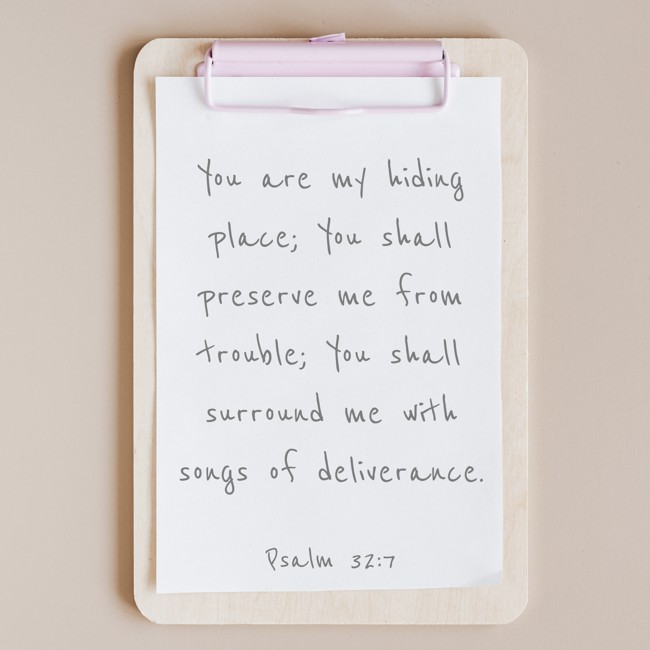 You are my hiding
place; You shall
preserve me from
trouble; You shall
surround me with
songs of deliverance.
Psalm 32:7